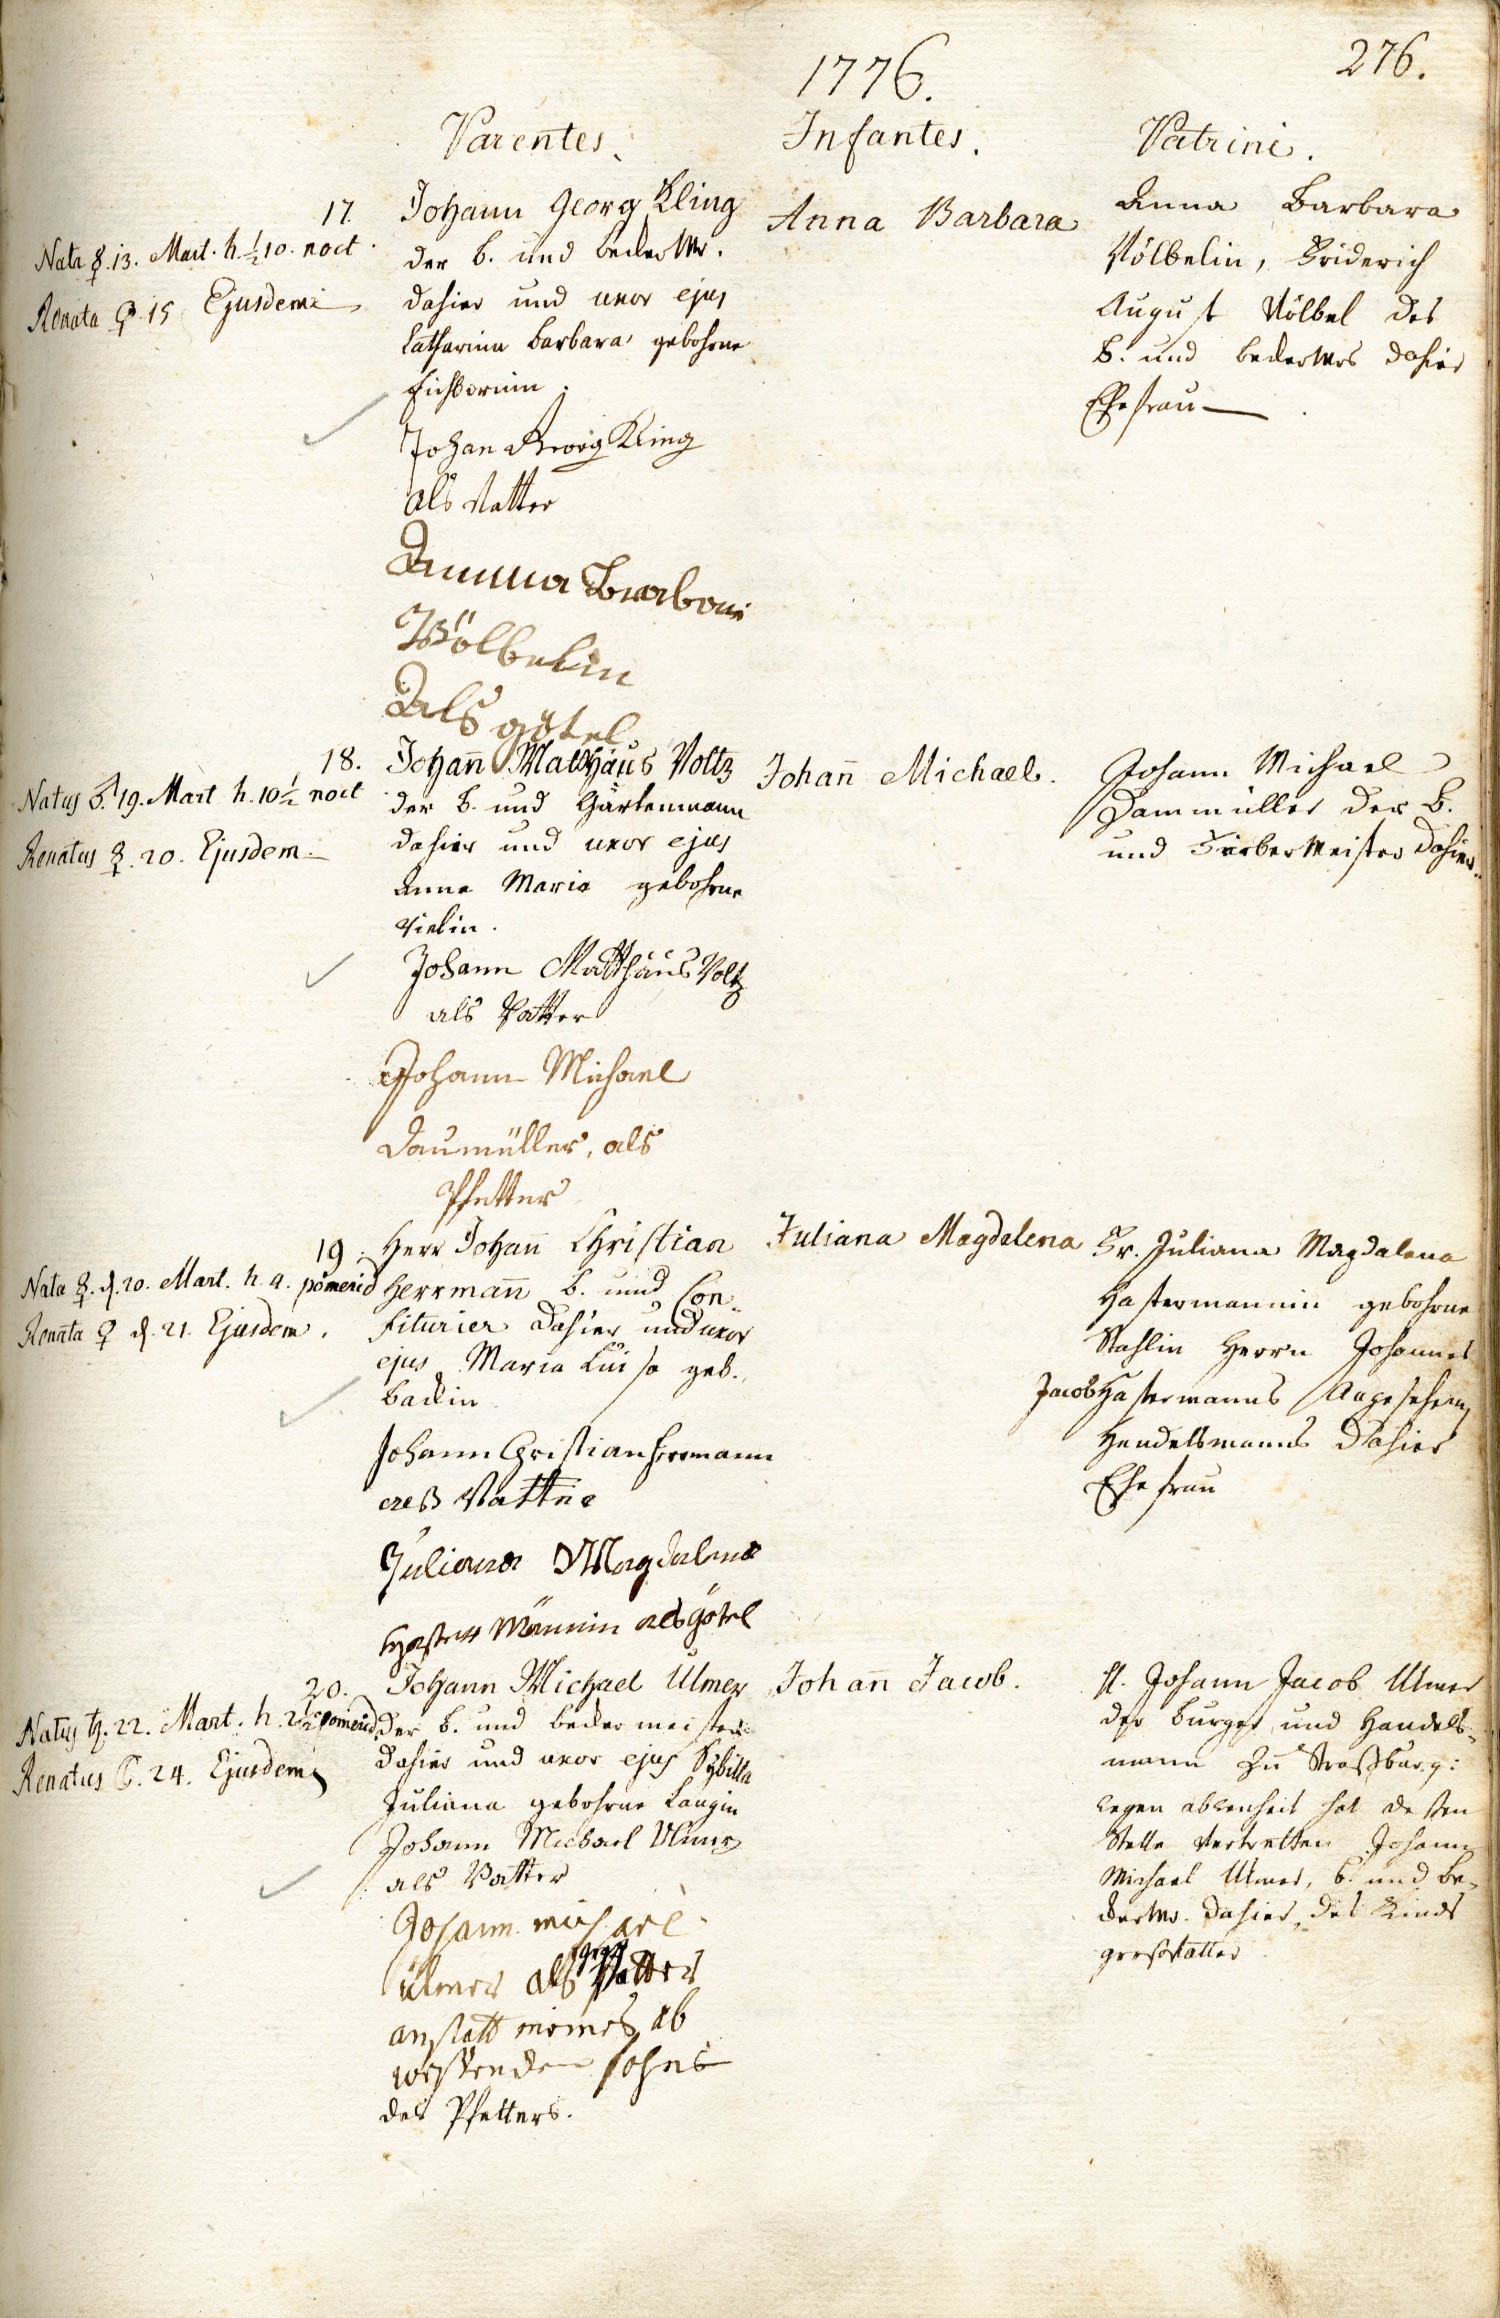 1776.
276.
Parentes.
Infantes.
Patrini.
17.
Nata ☿. 13. Mart. h. ½ 10. noct.
Renata ♀ 15 Ejusdem
Johann Georg Kling
der B. und becker Mr.
dahier und uxor ejus
Catharina Barbara gebohrne
Johan Georg Kling
als Vatter
Anna Barbara
Völbelin
Als götel
Anna Barbara
Anna Barbara
Völbelin, Friderich
August Völbel des
B. und becker Mrs dahier
Ehefrau
18.
Natus 19. Mart h. 10½ noct
Renatus ☿. 20. Ejusdem
Johañ Mathäus Voltz
der B. und Gärtenmann
dahier und uxor ejus
Anna Maria gebohrne
Johann Matthäus Voltz
als Vatter
Johann Michael
Daumüller, als
Pfetter
Johañ Michael.
Johann Michael
Daumüller der B.
und Färber Meister dahier.
19.
Nata ☿. d. 20. Mart. h. 4. pomerid
Renata ♀ d. 21. Ejusdem.
Herr Johañ Christian
Herrmañ B. und Con-
fiturier dahier und uxor
ejus Maria Luisa geb.
Backin
Johann Christian Herrmann
als Vatter
Juliana Magdalena
männin als götel
Juliana Magdalena
Fr. Juliana Magdalena
Hastermannin gebohrne
Stahlin Herrn Johannes
Jacob Hastermanns Angesehenen
Handelsmanns dahier
Ehefrau
20.
Natus ♄. 22. Mart. h. 2½ pomerid.
Renatus 24. Ejusdem
Johann Michael Ulmer
der B. und becker meister
dahier und uxor ejus Sybilla
Juliana gebohrne Langin
Johann Michael Ulmer
als Vatter
Johann michael
ulmer als gros Vatter
anstatt meines ab
wessenden sohns
des Pfetters.
Johañ Jacob.
H. Johann Jacob Ulmer
der Burger und Handels-
mann zu Straßburg:
wegen abwenheit hat dessen
Stelle vertretten Johann
Michael Ulmer, B. und be-
cker Mr. dahier, des Kinds
großvatter